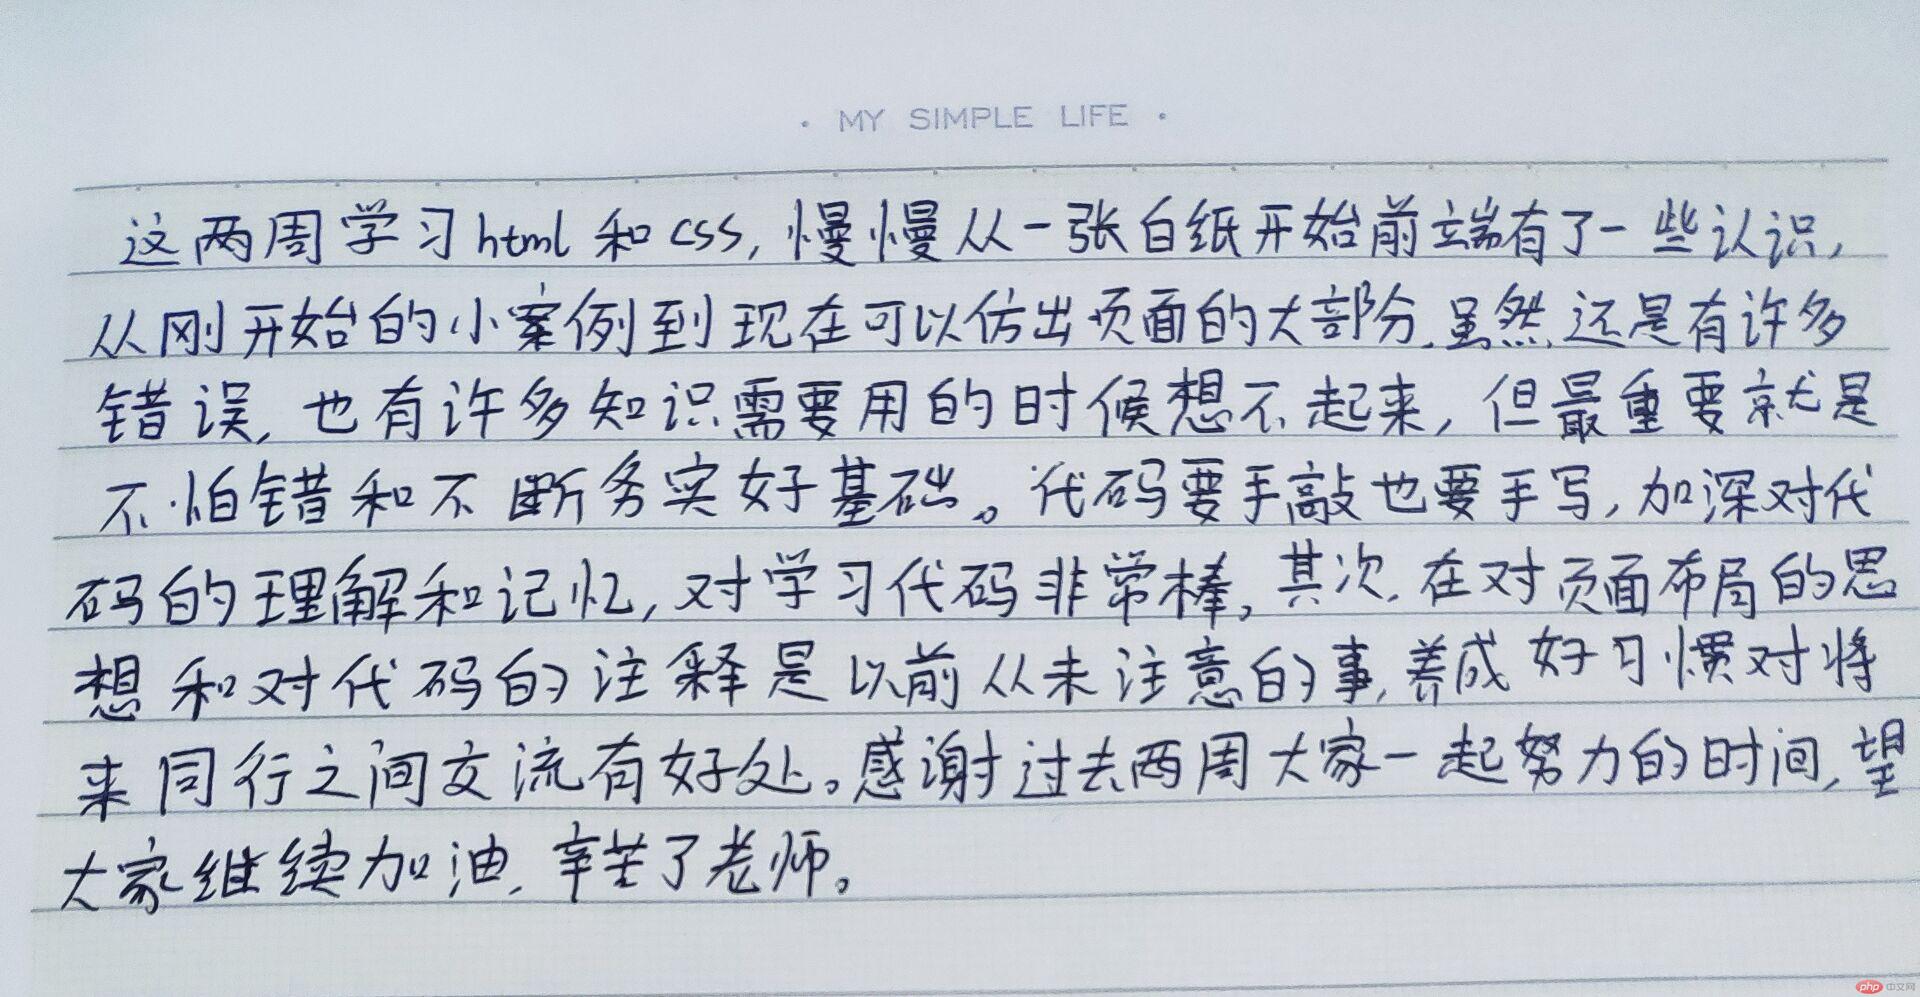 · MY SIMPLE LIFE ·
这两周学习html和css,慢慢从一张白纸开始前端有了一些认识,
从刚开始的小案例到现在可以仿出页面的大部分.虽然还是有许多
错误,也有许多知识需要用的时候想不起来,但最重要就是
不怕错和不断务实好基础。代码要手敲也要手写,加深对代
码的理解和记忆,对学习代码非常棒,其次,在对页面布局的思
想和对代码的注释是以前从未注意的事,养成好习惯对将
来同行之间交流有好处。感谢过去两周大家一起努力的时间,望
大家继续加油,辛苦了老师。
php 中文网